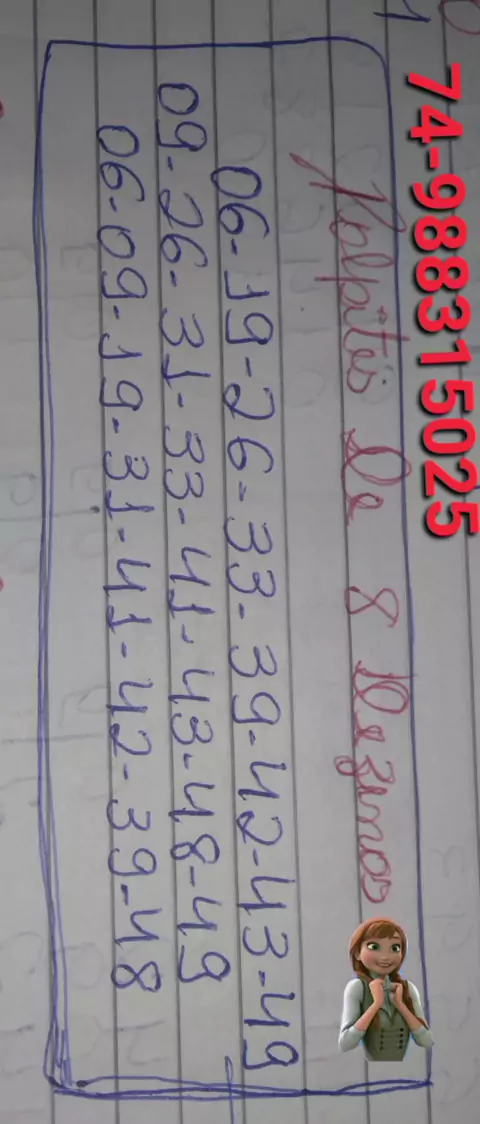 74-988315025
Palpites De 8 Dezenas
06-19-26-33-39-42-43-49
09-26-31-33-41-43-48-49
06-09-19-31-41-42-39-48